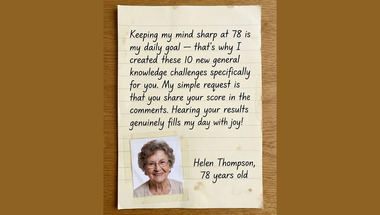 Keeping my mind sharp at 78 is
my daily goal — that's why I
created these 10 new general
knowledge challenges specifically
for you. My simple request is
that you share your score in the
comments. Hearing your results
genuinely fills my day with joy!
Helen Thompson,
78 years old